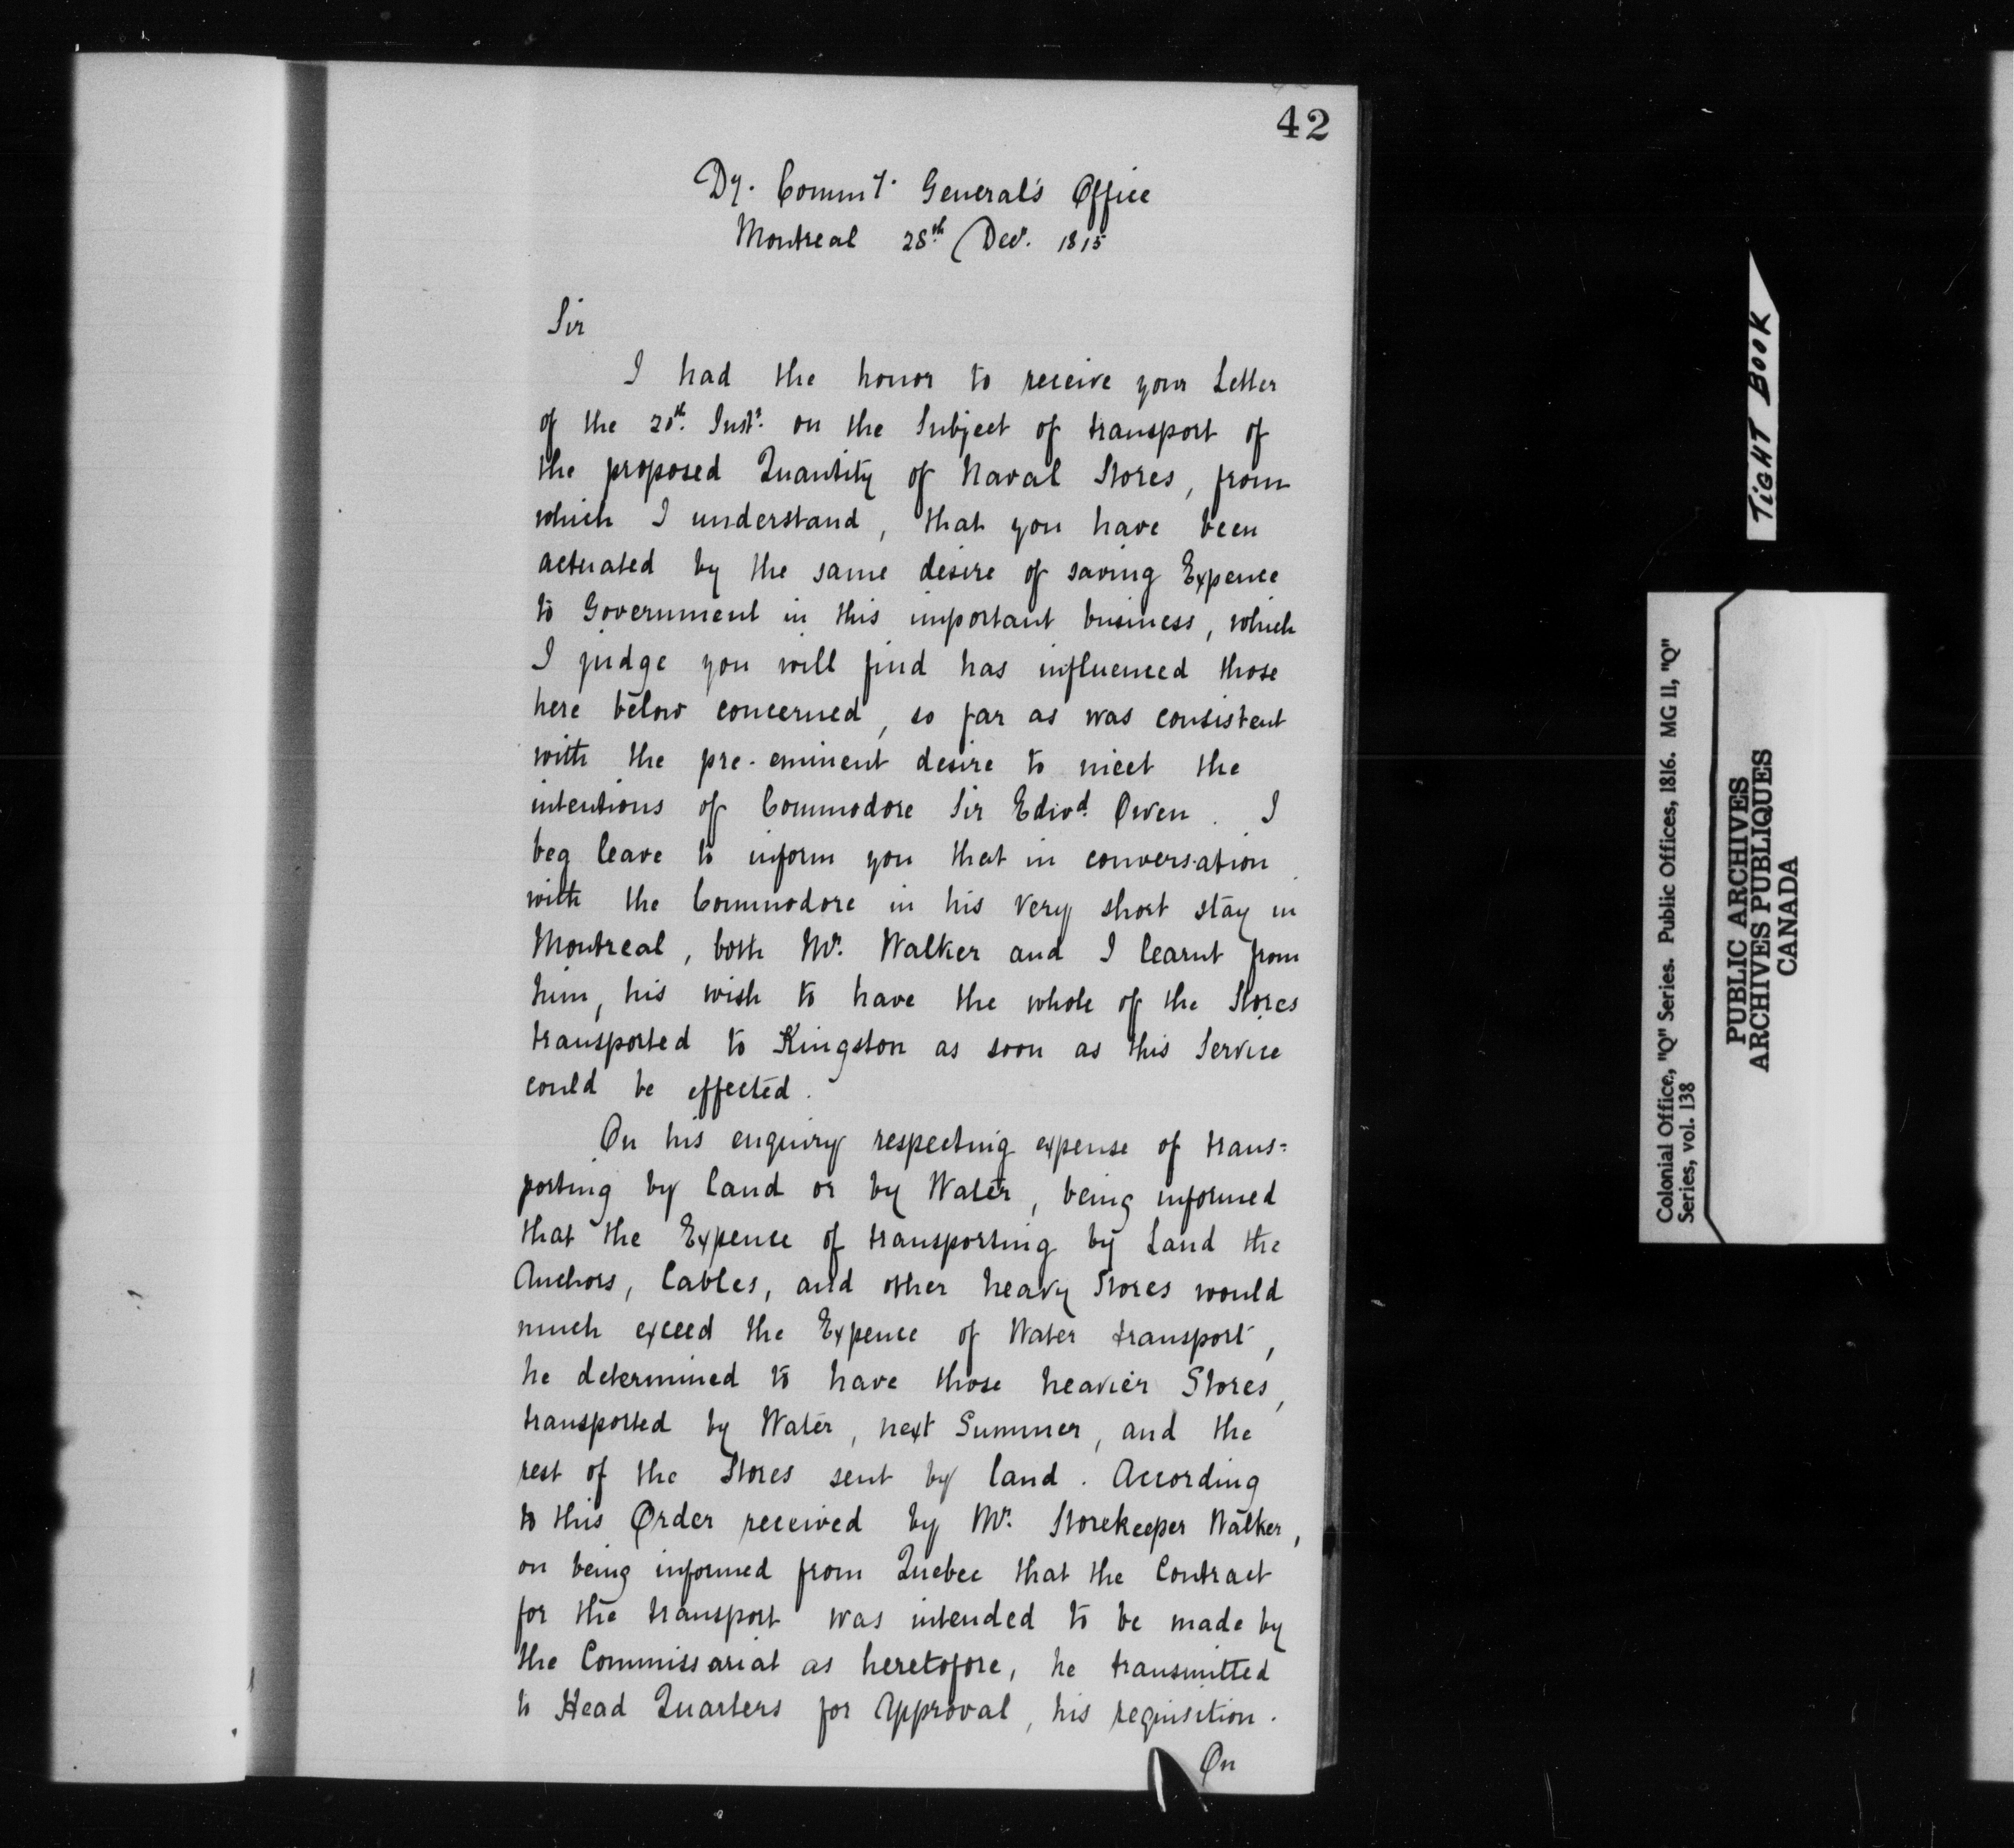 42
Dy. Commy. General's Office
Montreal 28th Decr. 1815
Sir
I had the honor to receive your Letter
of the 20th. Inst. on the Subject of transport of
the proposed Quantity of Naval Stores, from
which I understand, that you have been
actuated by the same desire of saving Expence
to Government in this important business, which
I judge you will find has influenced those
here below concerned, so far as was consistent
with the pre-eminent desire to meet the
intentions of Commodore Sir Edwd. Owen. I
beg leave to inform you that in conversation
with the Commodore in his very short stay in
Montreal, both Mr. Walker and I learnt from
him, his wish to have the whole of the Stores
transported to Kingston as soon as this Service
could be effected.
On his enquiry respecting expense of trans=
porting by land or by Water, being informed
that the Expence of transporting by Land the
Anchors, Cables, and other heavy Stores would
much exceed the Expence of Water transport,
he determined to have those heavier Stores,
transported by Water, next Summer, and the
rest of the Stores sent by land. According
to this Order received by Mr. Storekeeper Walker,
on being informed from Quebec that the Contract
for the transport was intended to be made by
the Commissariat as heretofore, he transmitted
to Head Quarters for Approval, his requisition.
On
TIGHT BOOK
Colonial Office, "Q" Series. Public Offices, 1816. MG 11, "Q"
Series, vol. 138
PUBLIC ARCHIVES
ARCHIVES PUBLIQUES
CANADA